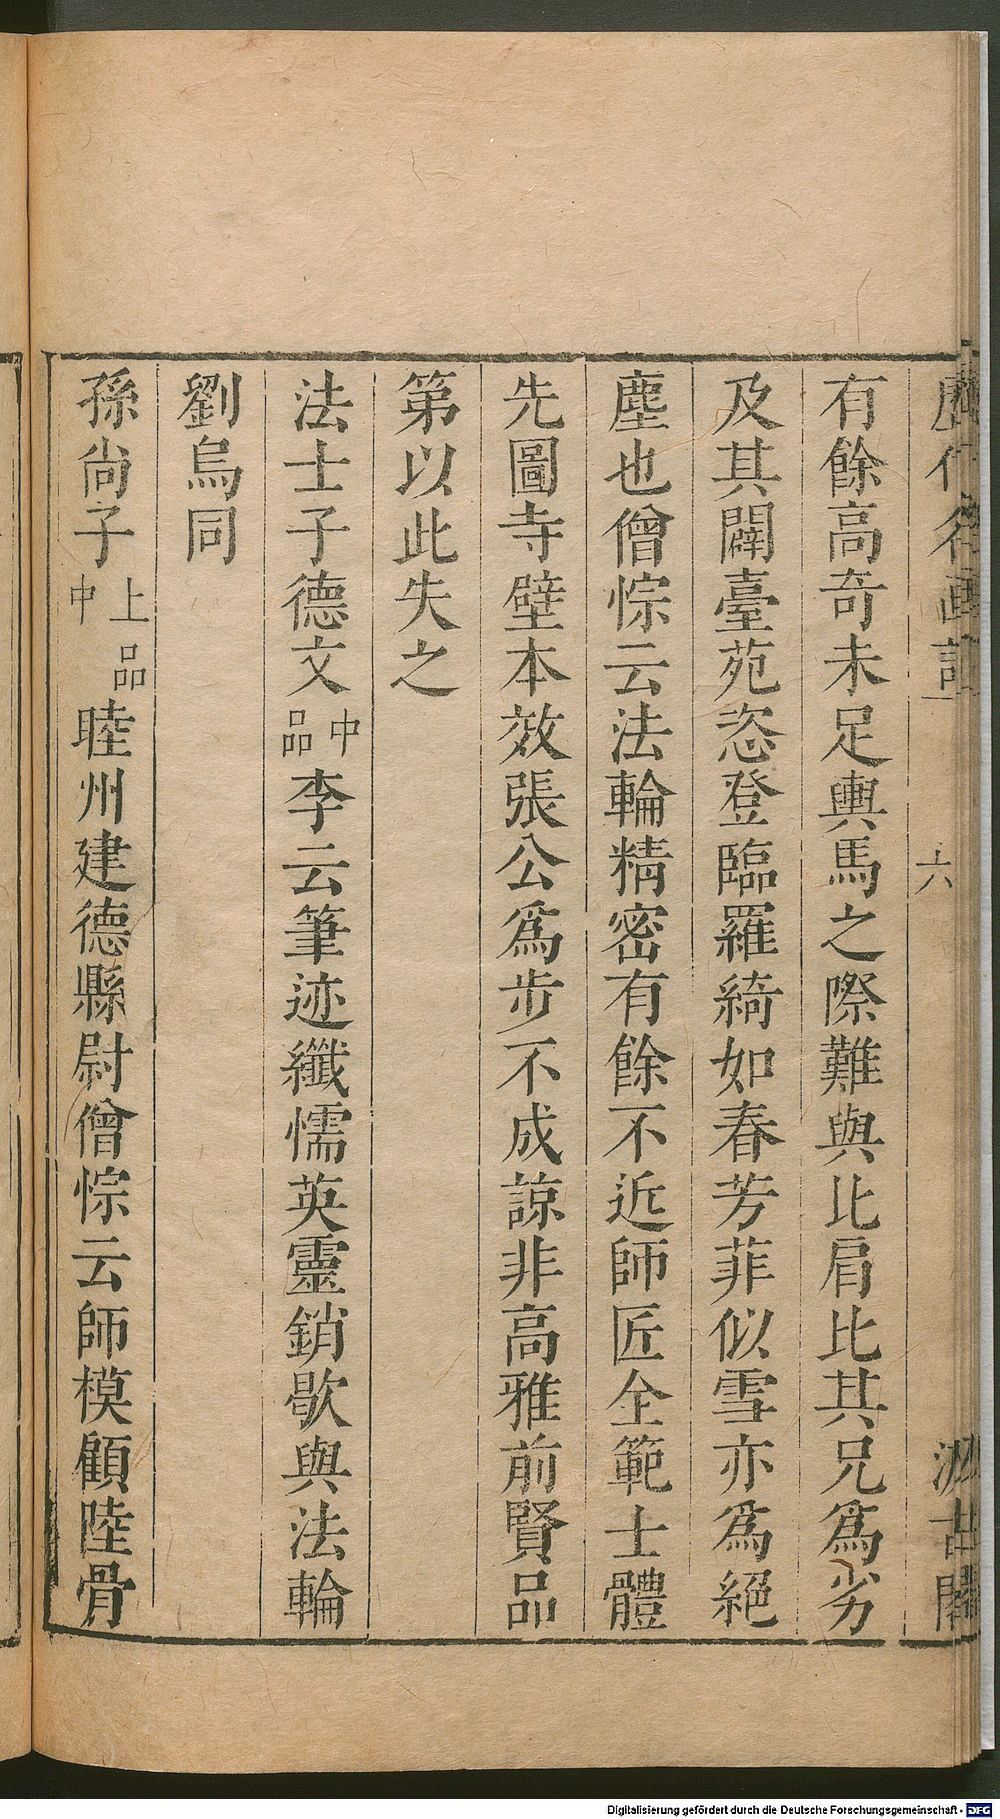 歷代名画記
六
汲古閣
有餘高奇未足輿馬之際難與比肩比其兄爲劣
及其闢臺苑恣登臨羅綺如春芳菲似雪亦爲絕
塵也僧悰云法輪精密有餘不近師匠全範士體
先圖寺壁本效張公爲步不成諒非高雅前賢品
第以此失之
法士子德文中品李云筆迹纖懦英靈銷歇與法輪
劉烏同
孫尚子上品中睦州建德縣尉僧悰云師模顧陸骨
Digitalisierung gefördert durch die Deutsche Forschungsgemeinschaft - DFG